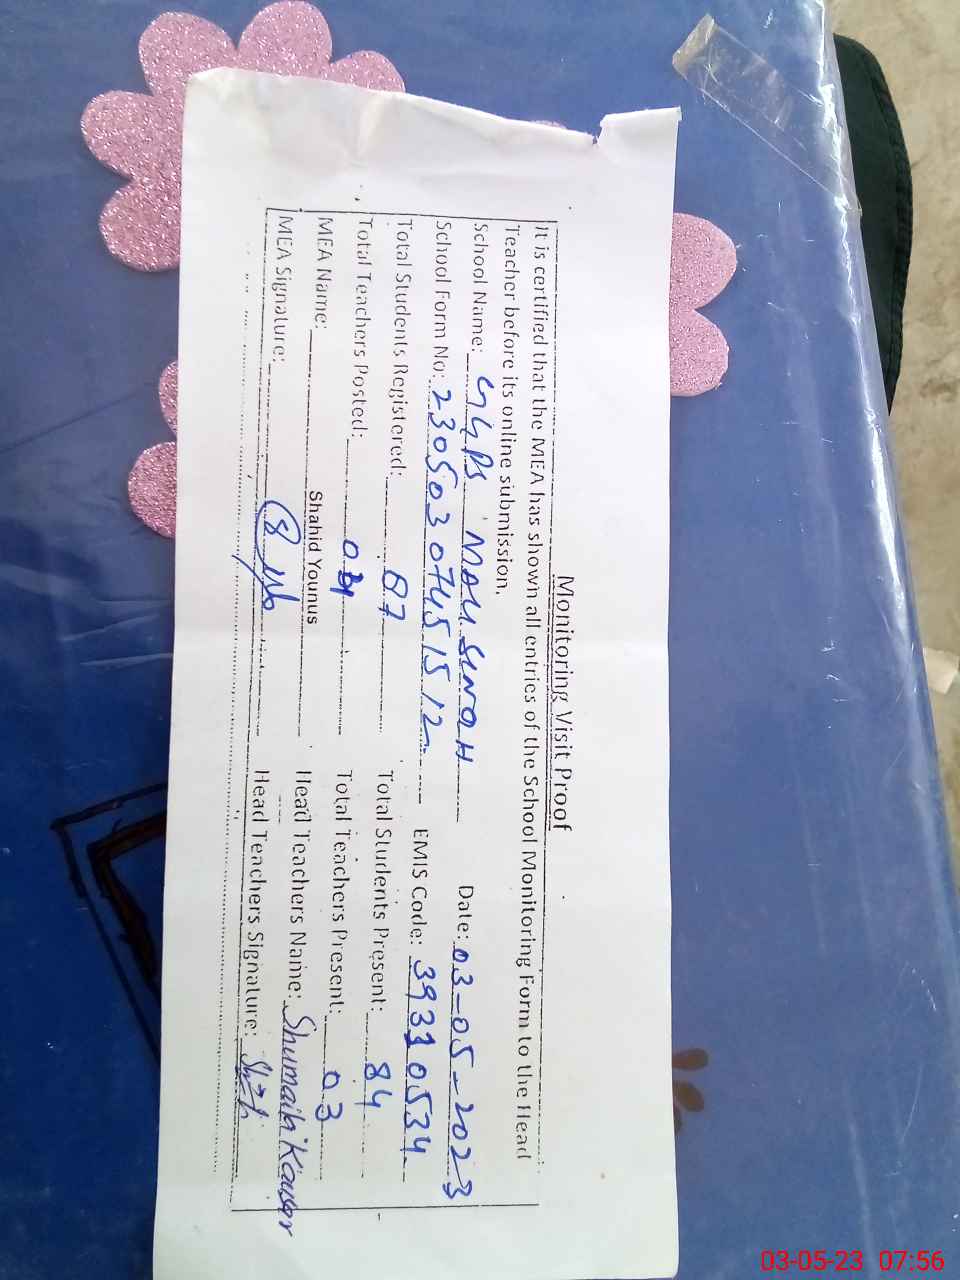 Monitoring Visit Proof
It is certified that the MEA has shown all entries of the School Monitoring Form to the Head
Teacher before its online submission.
School Name: GGPS MALL SINGH Date: 03-05-2023
School Form No: 23050307451512 EMIS Code: 39330534
Total Students Registered: 87 Total Students Present: 84
Total Teachers Posted: 04 Total Teachers Present: 03
MEA Name: Shahid Younus Head Teachers Name: Shumaila Kausar
MEA Signature: Head Teachers Signature:
03-05-23 07:56